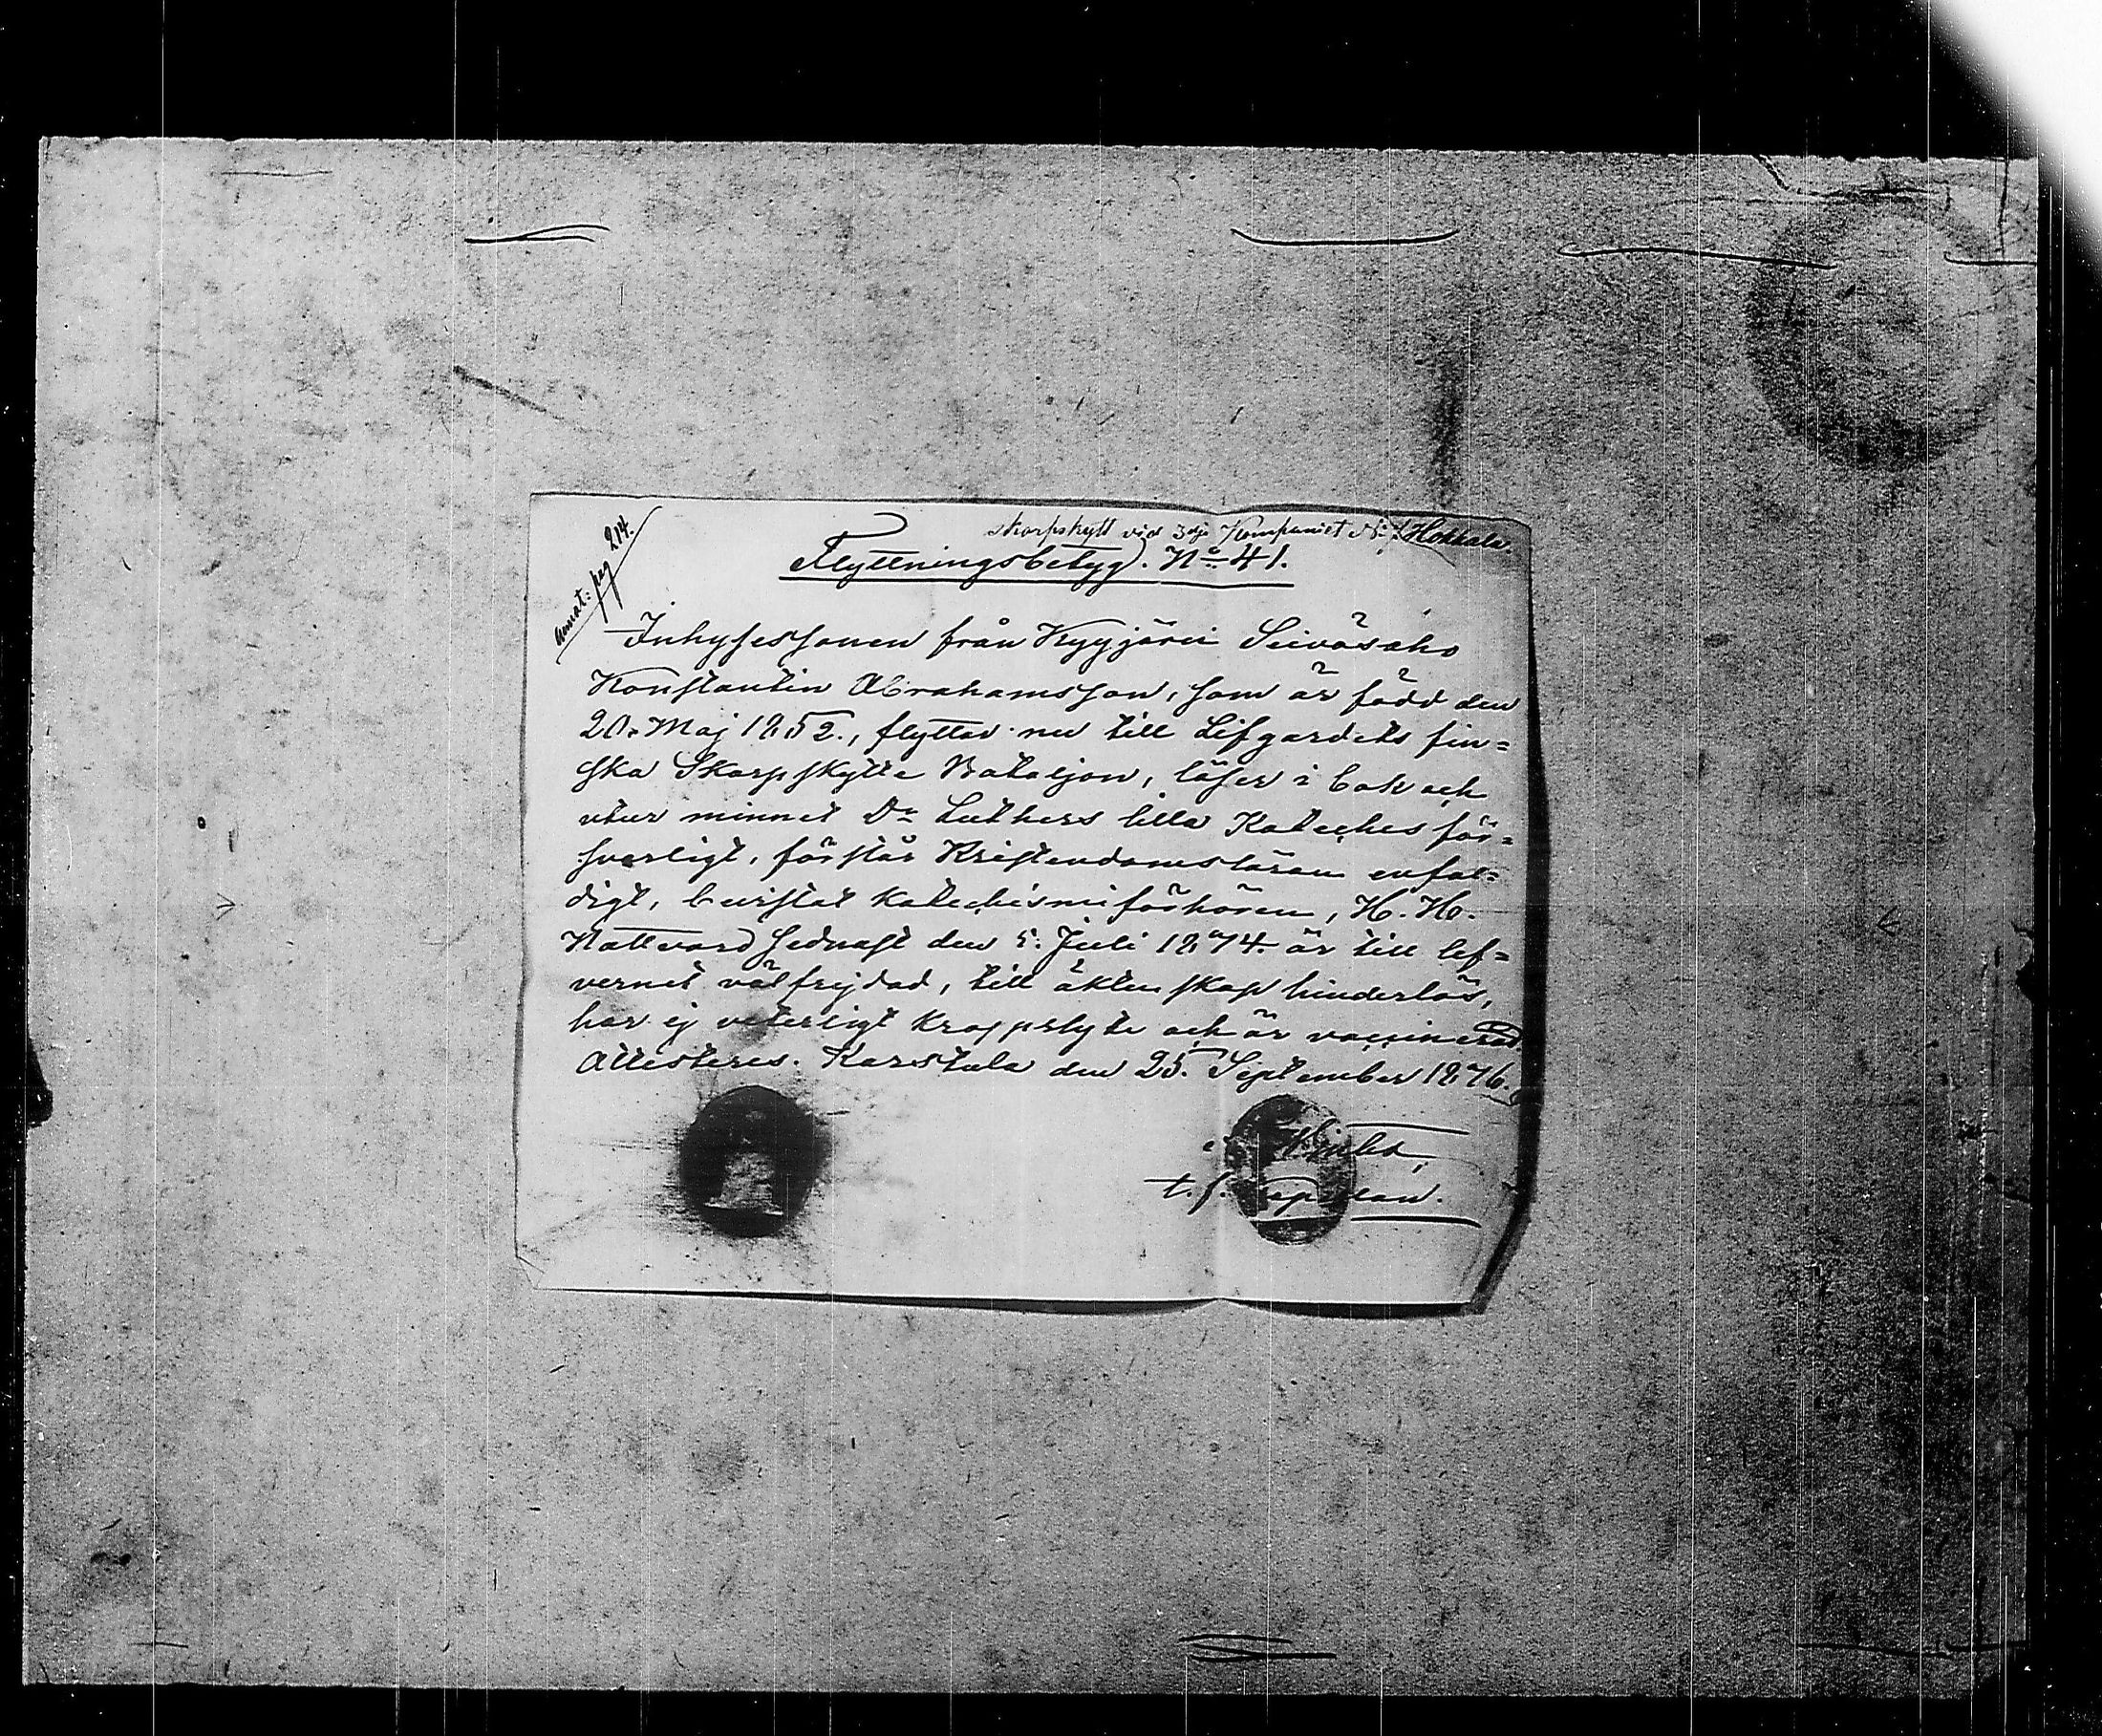 annot: pag 214.
skarpskytt vid 3dje Kompaniet No Hokkala.
Flyttningsbetyg. No 41.
Inhysessonen från Kyyjärvi Seiväsaho
Konstantin Abrahamsson, som är född den
20. Maj 1852., flyttar nu till Lifgardets fin=
ska Skarpskytte Bataljon, läser i bok och
utur minnet Dr Luthers lilla Kateches för=
svarligt, förstår Kristendomsläran enfal=
digt, bevistat Katechismiförhören, H. H.
Nattvard sednast den 5. Juli 1874. är till lef=
vernet välfrejdad, till äktenskap hinderlös,
har ej veterligt kroppslyte och är vaccinerad
Attesteras. Karstula den 25. September 1876.
t. f.